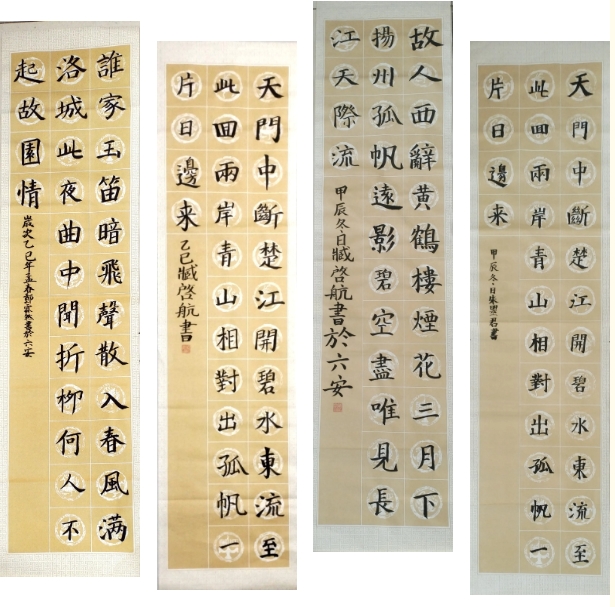 誰家玉笛暗飛聲散入春風满
洛城此夜曲中聞折柳何人不
起故園情
歲次乙巳年孟春 書於六安
天門中斷楚江開碧水東流至
此回兩岸青山相對出孤帆一
片日邊来
乙巳臧啓航書
故人西辭黄鶴樓煙花三月下
揚州孤帆遠影碧空盡唯見長
江天際流
甲辰冬日臧啓航書於六安
天門中斷楚江開碧水東流至
此回兩岸青山相對出孤帆一
片日邊来
甲辰冬日朱 君書